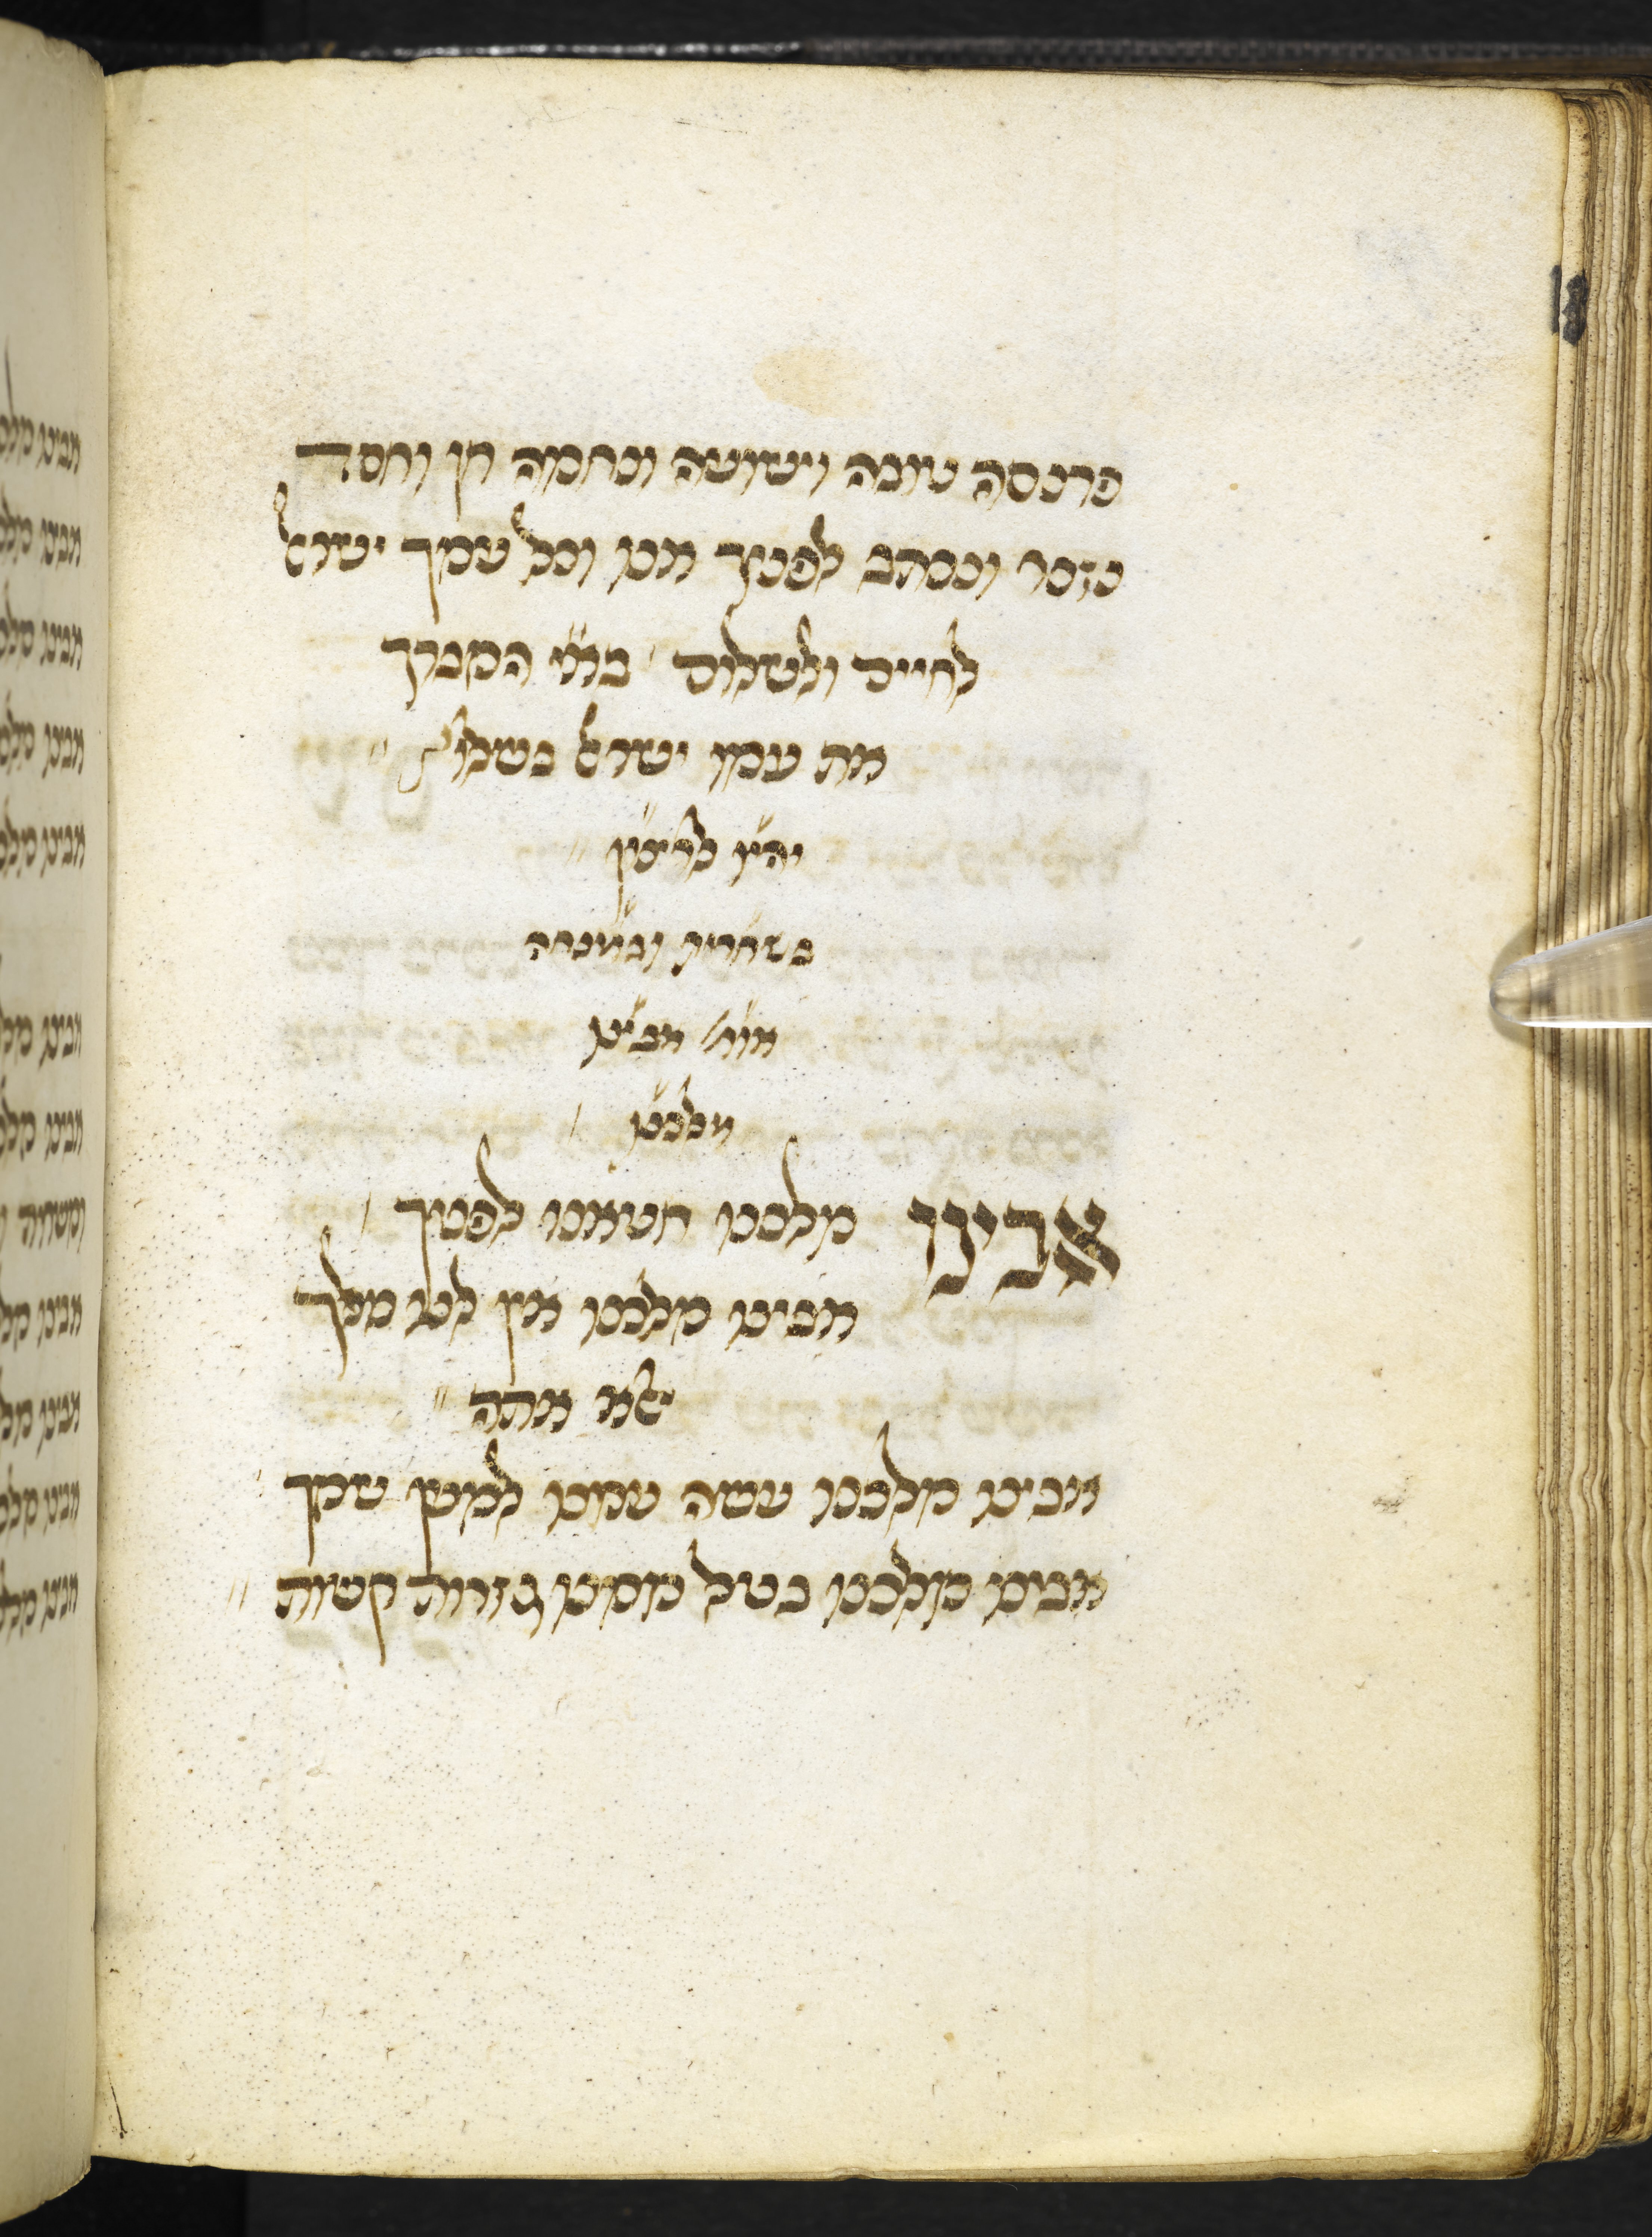 פרנסה טובה וישועה ונחמה חן וחסד
נזכר ונכתב לפניך אנו וכל עמך ישראל
לחיים ולשלום בא״י המברך
את עמו ישראל בשלו׳
יהיו לרצון
בשחרית ובמנחה
אומ׳ אבינו
מלכנו
אבינו מלכנו חטאנו לפניך
אבינו מלכנו אין לנו מלך
אלא אתה
אבינו מלכנו עשה עמנו למען שמך
אבינו מלכנו בטל ממנו גזרות קשות